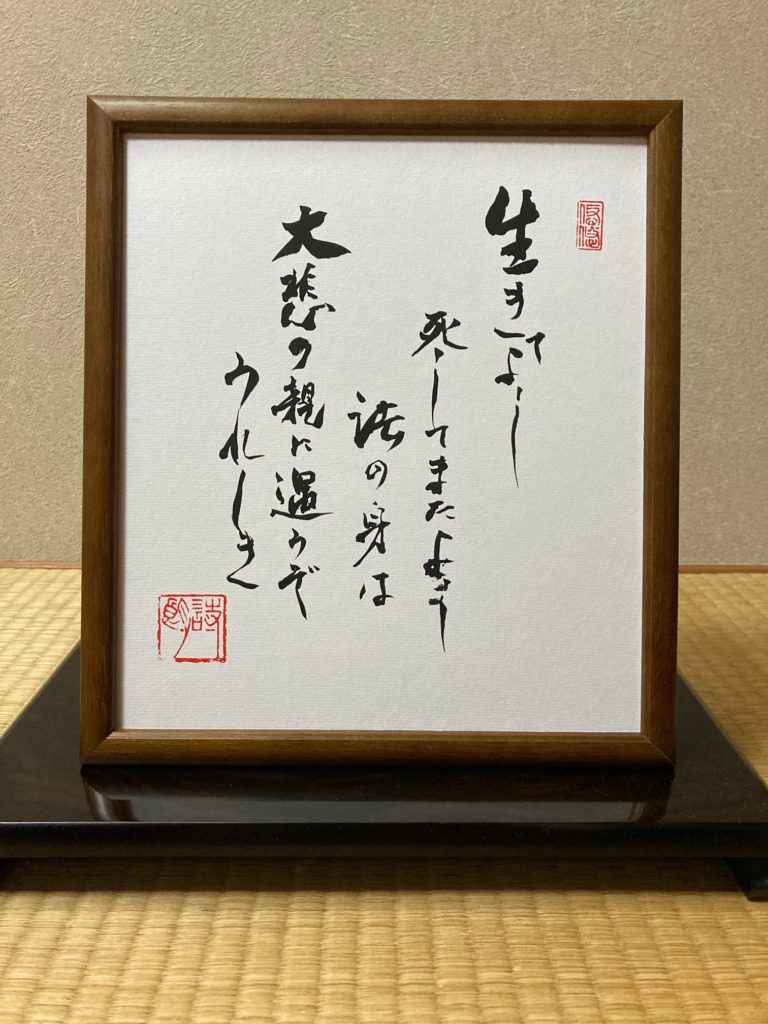 生きてよし
死してまたよき
法の身は
大悲の親に遇うぞ
うれしき